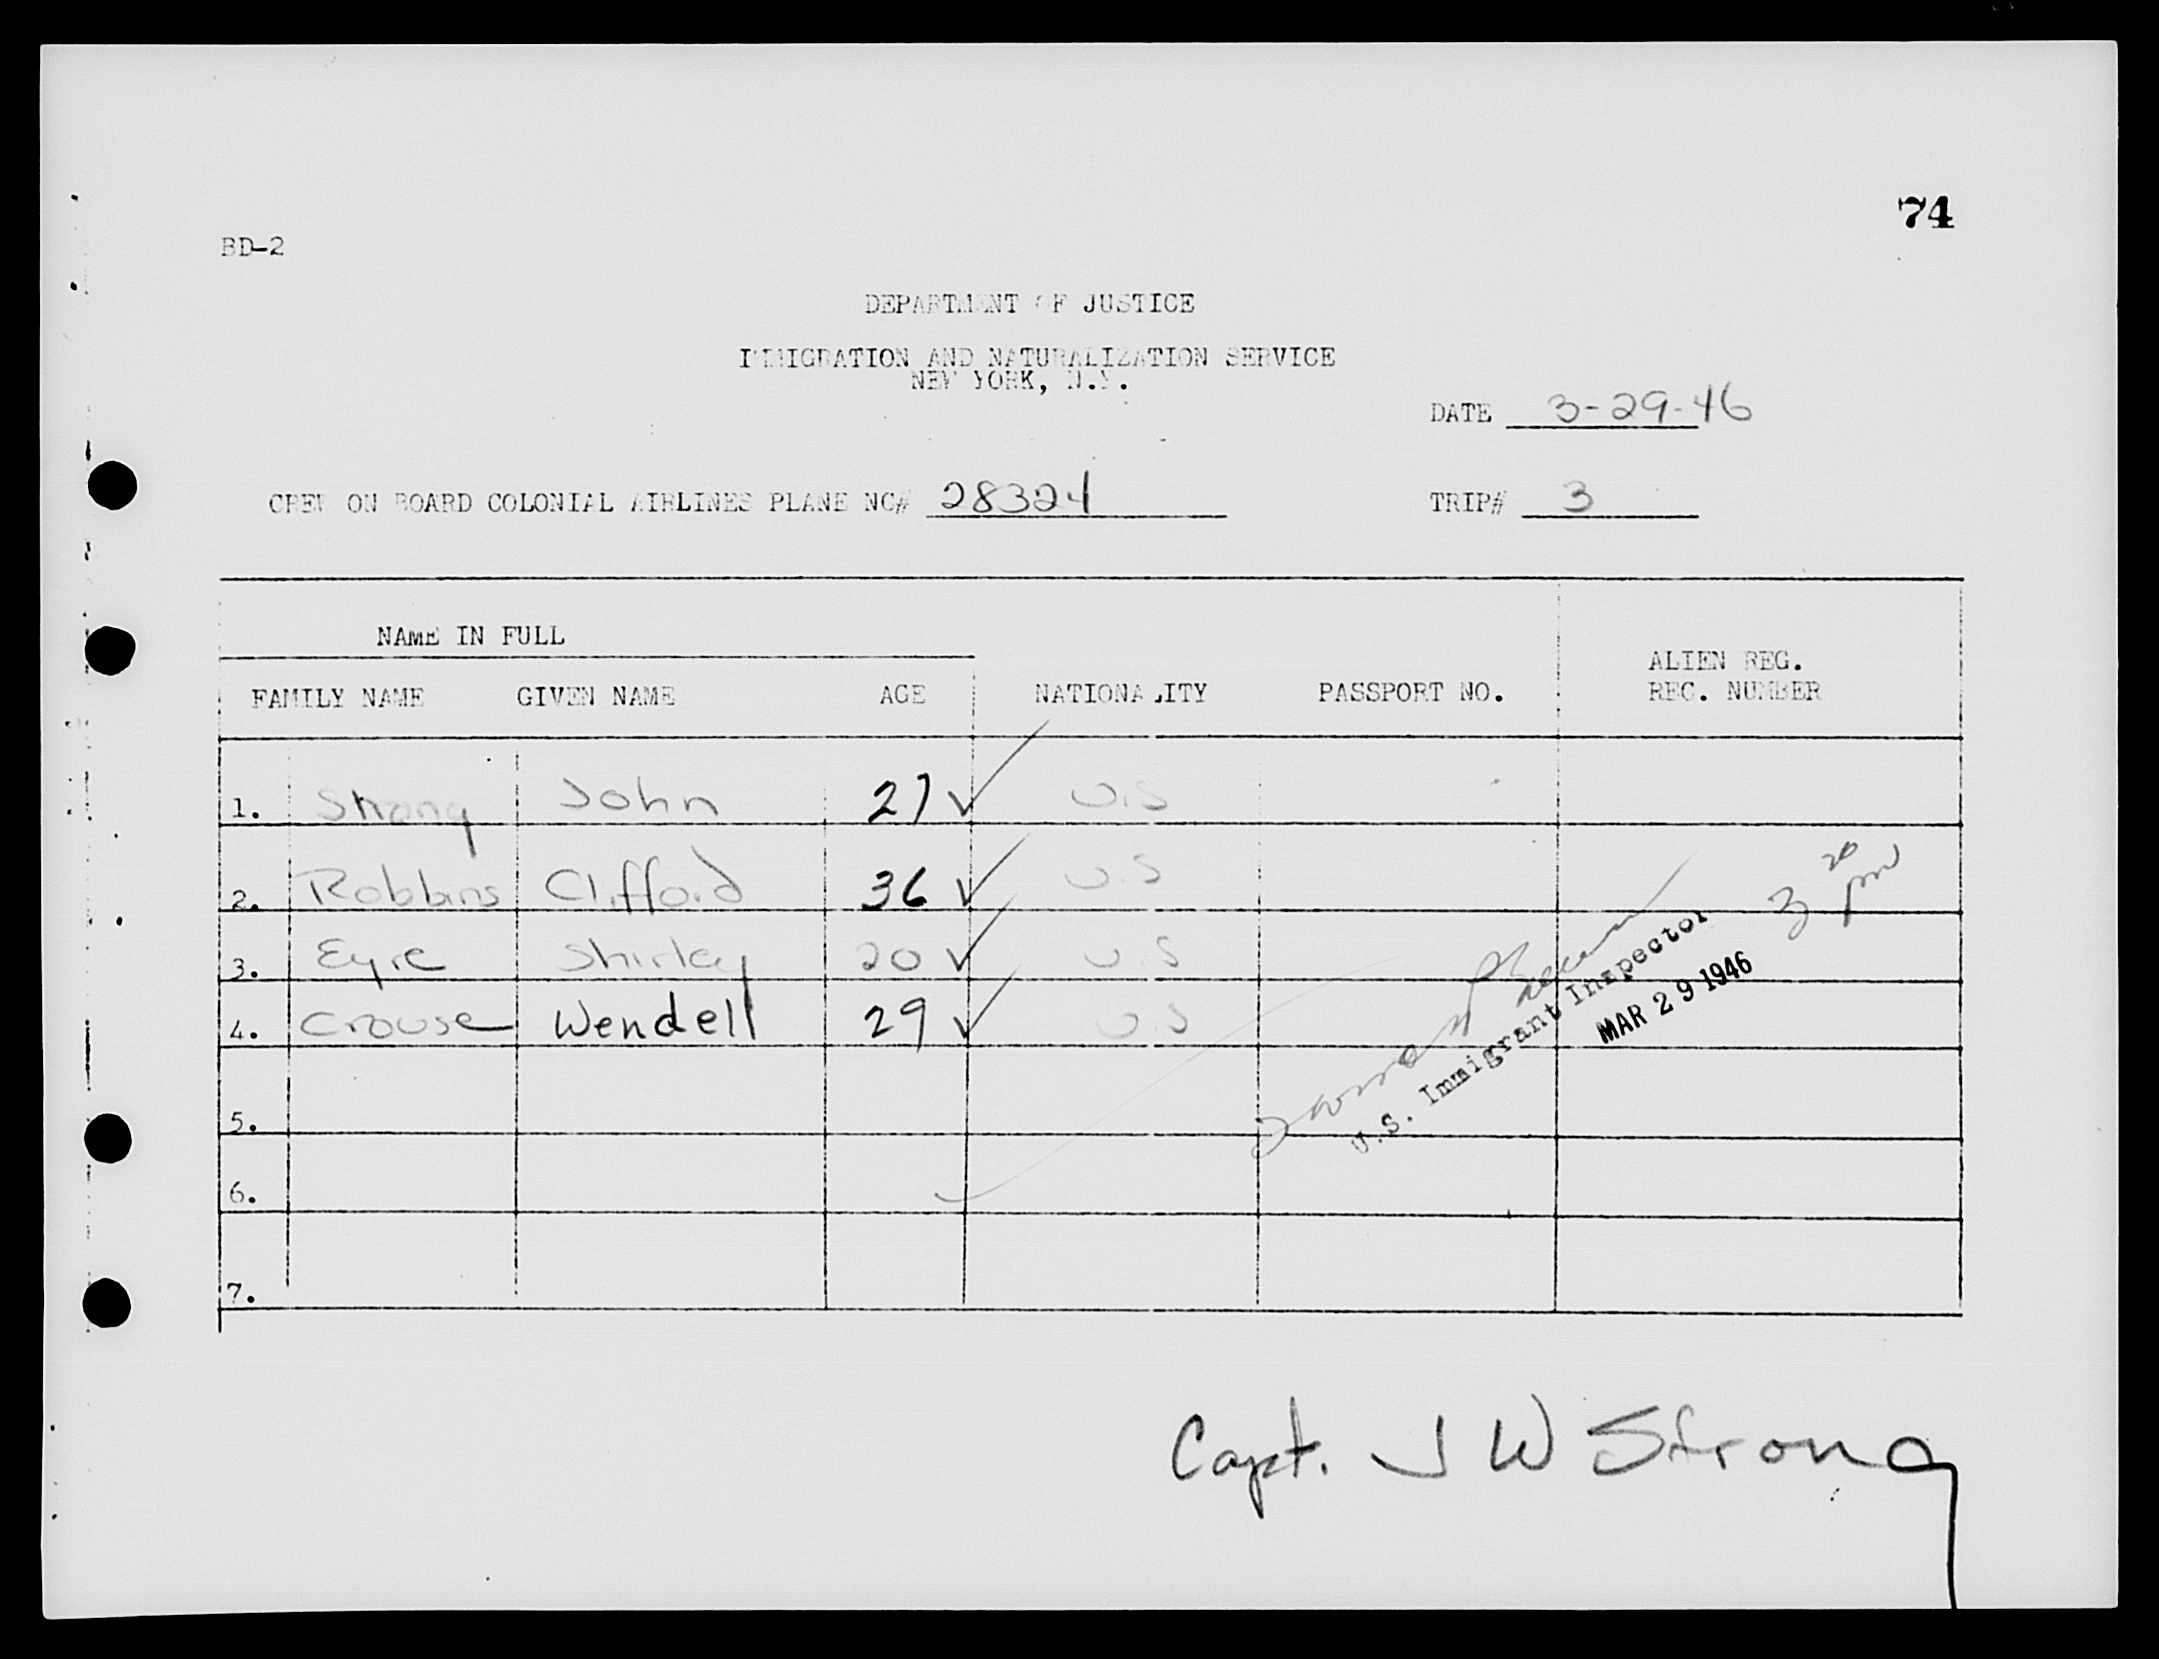 74
BD-2
DEPARTMENT OF JUSTICE
IMMIGRATION AND NATURALIZATION SERVICE
NEW YORK, N.Y.
DATE 3-29-46
CREW ON BOARD COLONIAL AIRLINES PLANE NC# 28324 TRIP# 3
NAME IN FULL
FAMILY NAME GIVEN NAME AGE NATIONALITY PASSPORT NO. ALIEN REG. REC. NUMBER
1. Strong John 27 ✓ U.S
2. Robbins Clifford 36 ✓ U.S
3. Eyre Shirley 20 ✓ U.S
4. Crouse Wendell 29 ✓ U.S
5.
6.
7.
3 20 pm
U.S. Immigrant Inspector
MAR 29 1946
Capt. J W Strong